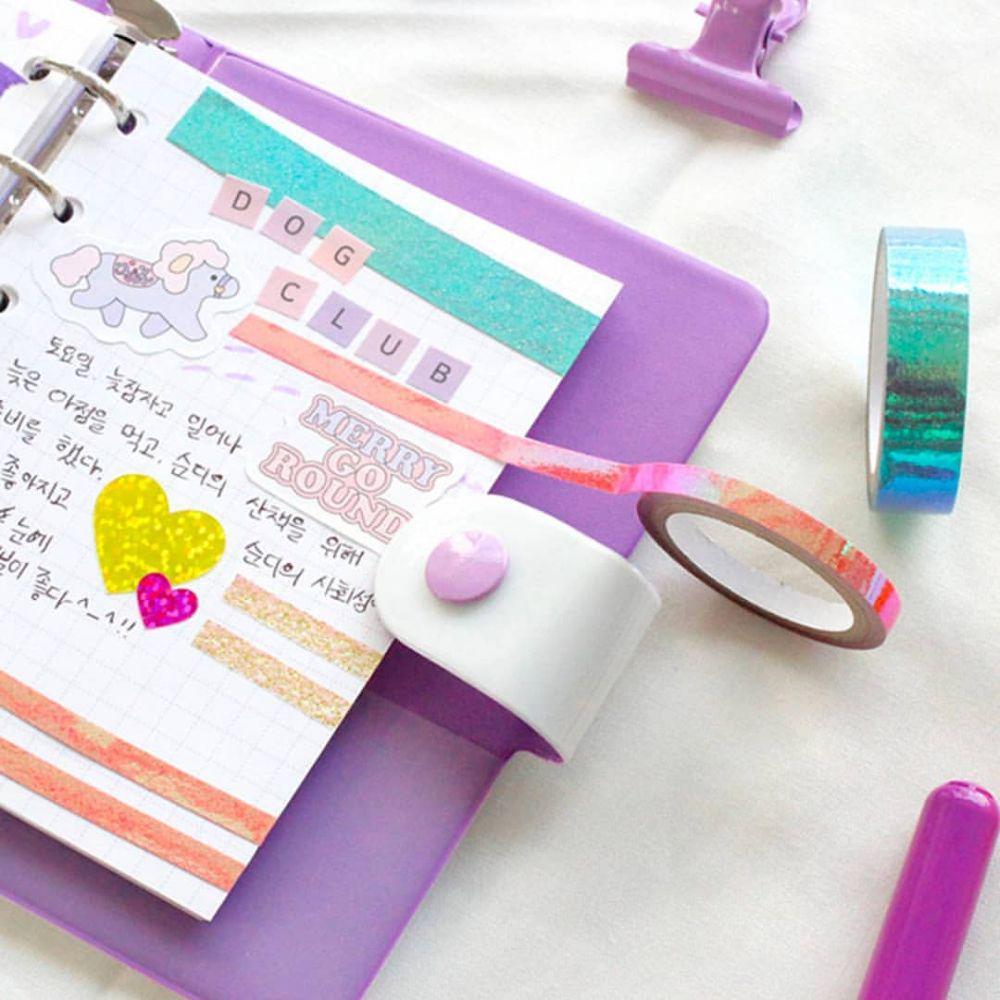 DOG
CLUB
MERRY
GO
ROUND
토요일. 늦잠자고 일어나
늦은 아점을 먹고, 순디의 산책을 위해
준비를 했다. 순디의 사회성
좋아지고
눈에
좋다 ^-^!!